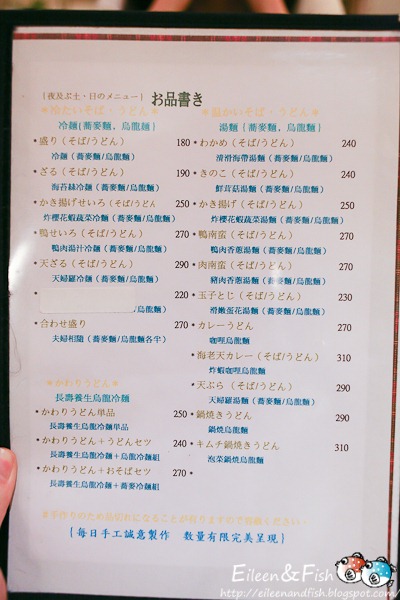 {夜及ぶ土、日のメニュー} お品書き
＊冷たいそば・うどん＊
冷麵{蕎麥麵．烏龍麵}
・盛り（そば/うどん） 180
冷麵（蕎麥麵/烏龍麵）
・ざる（そば/うどん） 190
海苔絲冷麵（蕎麥麵/烏龍麵）
・かき揚げせいろ（そば/うどん） 250
炸櫻花蝦蔬菜冷麵（蕎麥麵/烏龍麵）
・鴨せいろ（そば/うどん） 270
鴨肉湯汁冷麵（蕎麥麵/烏龍麵）
・天ざる（そば/うどん） 290
天婦羅冷麵（蕎麥麵/烏龍麵）
・ 220
烏龍麵）
・合わせ盛り 270
夫婦相隨（蕎麥麵/烏龍麵各半）
＊かわりうどん＊
長壽養生烏龍冷麵
・かわりうどん単品 250
長壽養生烏龍冷麵單品
・かわりうどん＋うどんセツ 240
長壽養生烏龍冷麵＋烏龍冷麵組
・かわりうどん＋おそばセツ 270
長壽養生烏龍冷麵＋蕎麥冷麵組
＊温かいそば・うどん＊
湯麵{蕎麥麵．烏龍麵}
・わかめ（そば/うどん） 240
清滑海帶湯麵（蕎麥麵/烏龍麵）
・きのこ（そば/うどん） 240
鮮茸菇湯麵（蕎麥麵/烏龍麵）
・かき揚げ（そば/うどん） 250
炸櫻花蝦蔬菜湯麵（蕎麥麵/烏龍麵）
・鴨南蛮（そば/うどん） 270
鴨肉香蔥湯麵（蕎麥麵/烏龍麵）
・肉南蛮（そば/うどん） 270
豬肉香蔥湯麵（蕎麥麵/烏龍麵）
・玉子とじ（そば/うどん） 230
滑嫩蛋花湯麵（蕎麥麵/烏龍麵）
・カレーうどん 270
咖哩烏龍麵
・海老天カレー（そば/うどん） 310
炸蝦咖哩烏龍麵
・天ぷら（そば/うどん） 290
天婦羅湯麵（蕎麥麵/烏龍麵）
・鍋焼きうどん 290
鍋燒烏龍麵
・キムチ鍋焼きうどん 310
泡菜鍋燒烏龍麵
＊手作りのため品切れになることが有りますので御願ください。
{每日手工誠意製作　數量有限完美呈現}
Eileen&Fish
http://eileenandfish.blogspot.com/